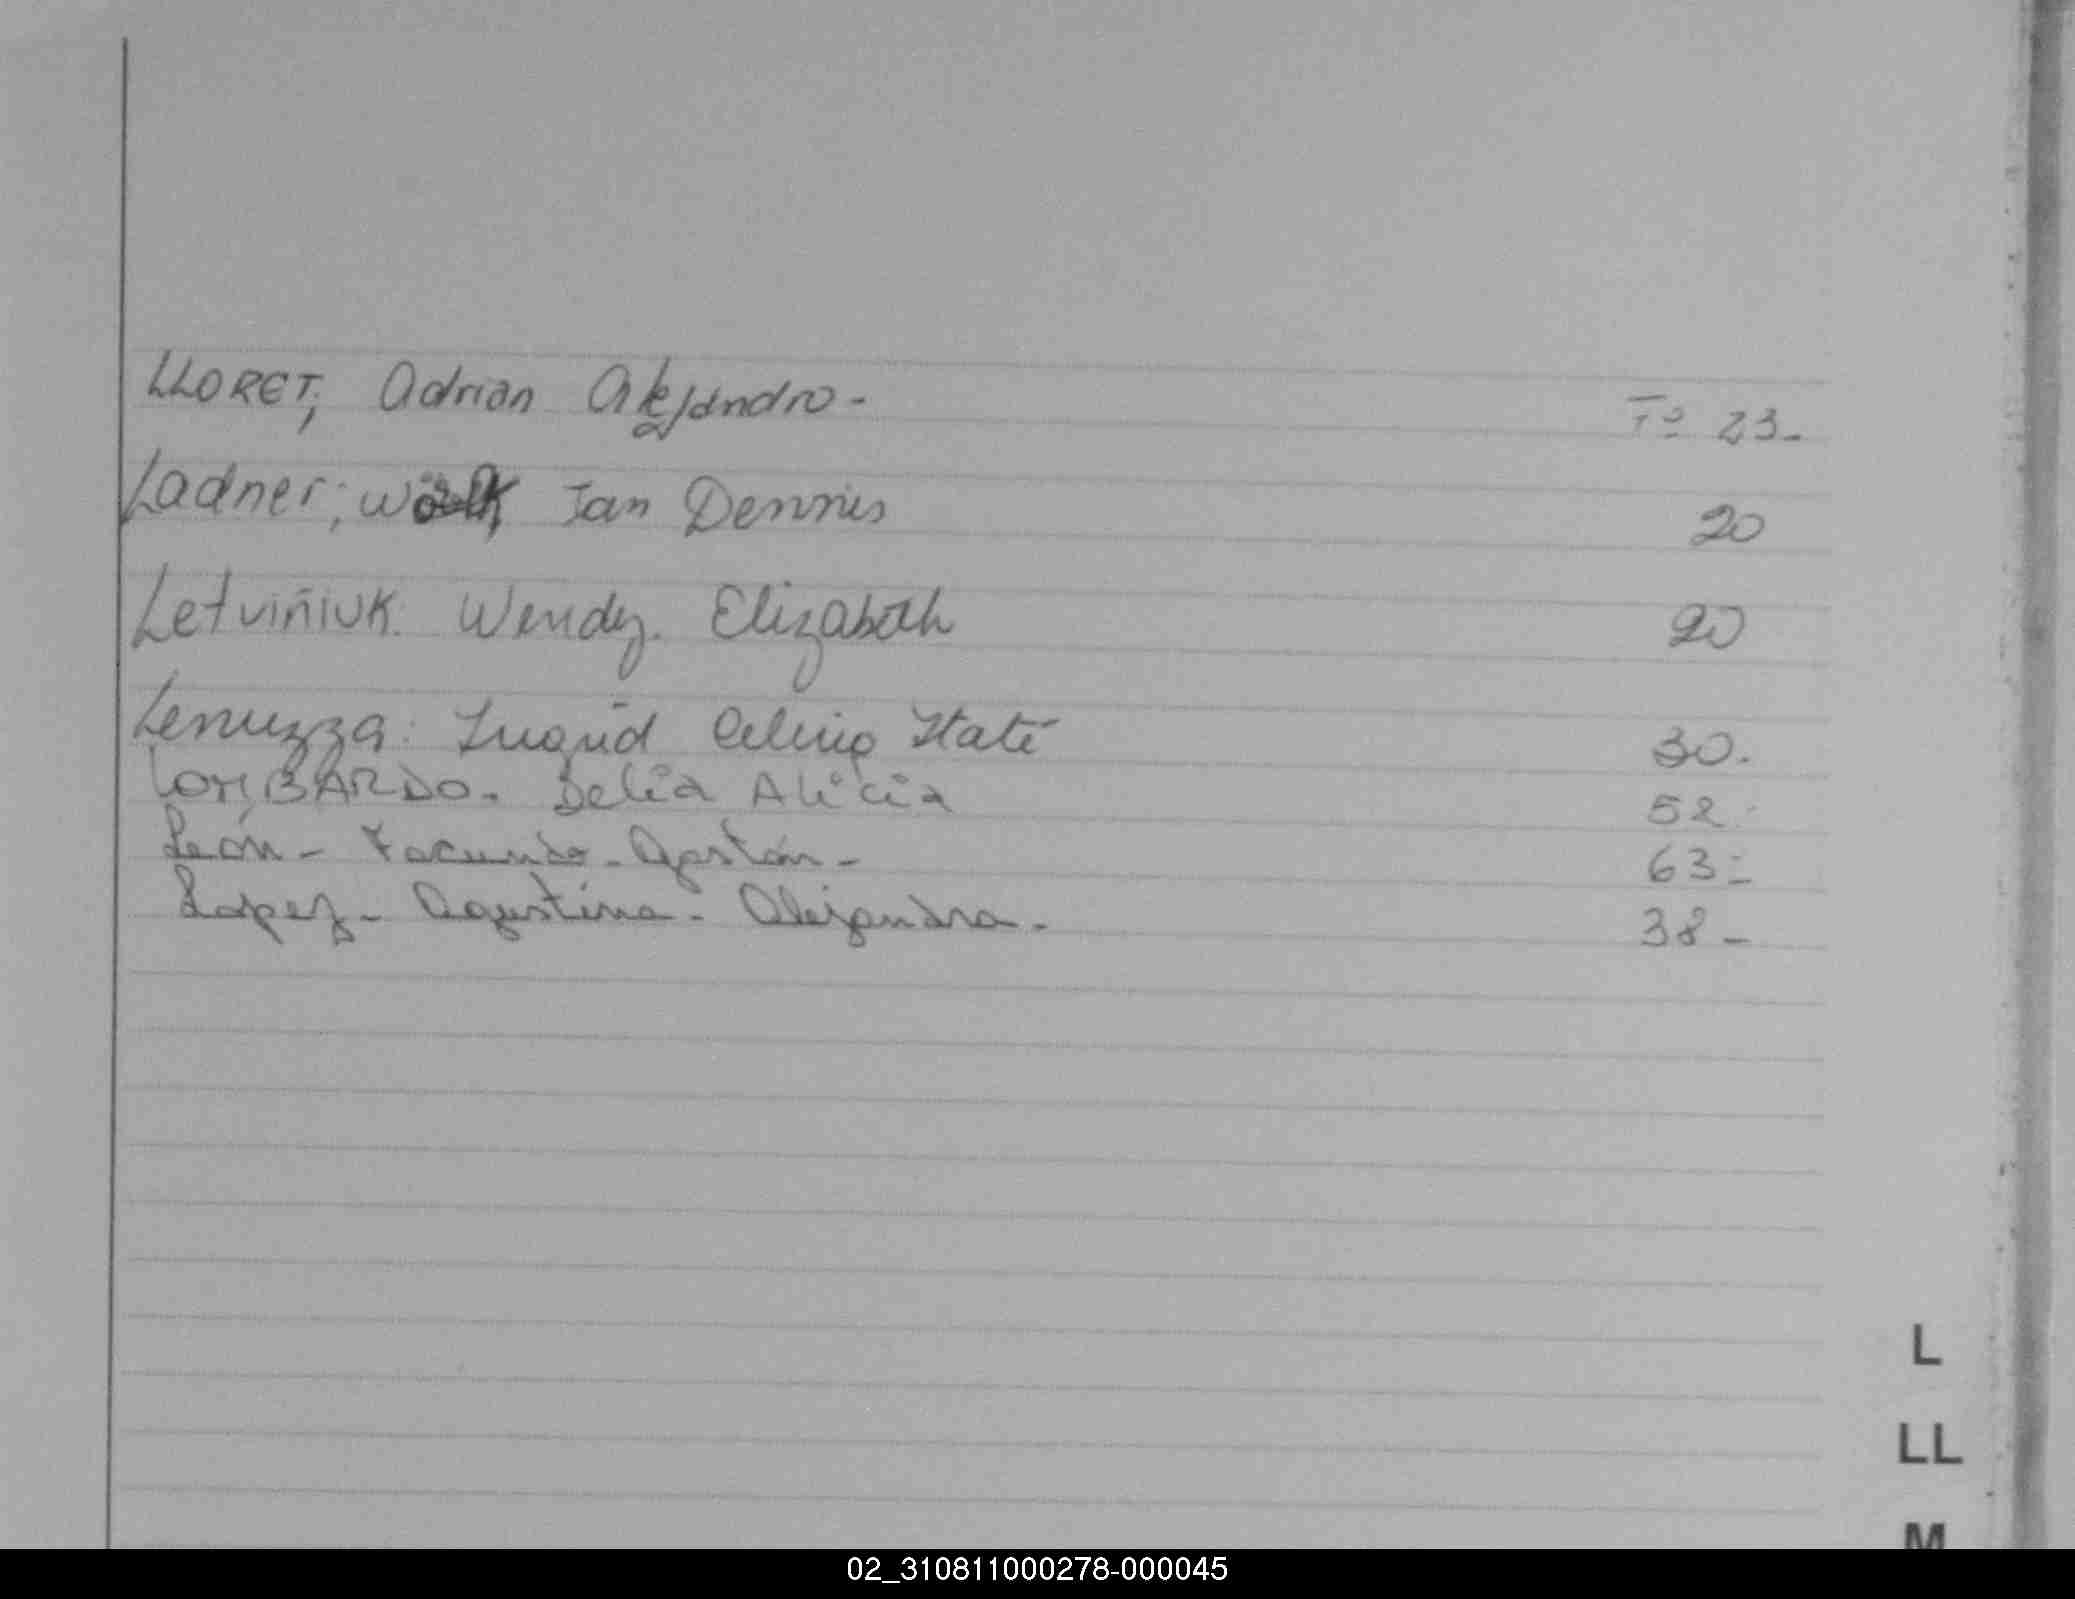 LLORET, Adrian Alejandro - Fº 23-
Ladner; Wölk, Jan Dennis 20
Letviñiuk. Wendy. Elizabeth 20
Lenuzza: Ingrid Celina Itatí 30.
LOMBARDO. Delia Alicia 52.
León - Facundo - Gastón - 63-
Lopez - Agustina - Alejandra. 38-
L
LL
M
02_310811000278-000045